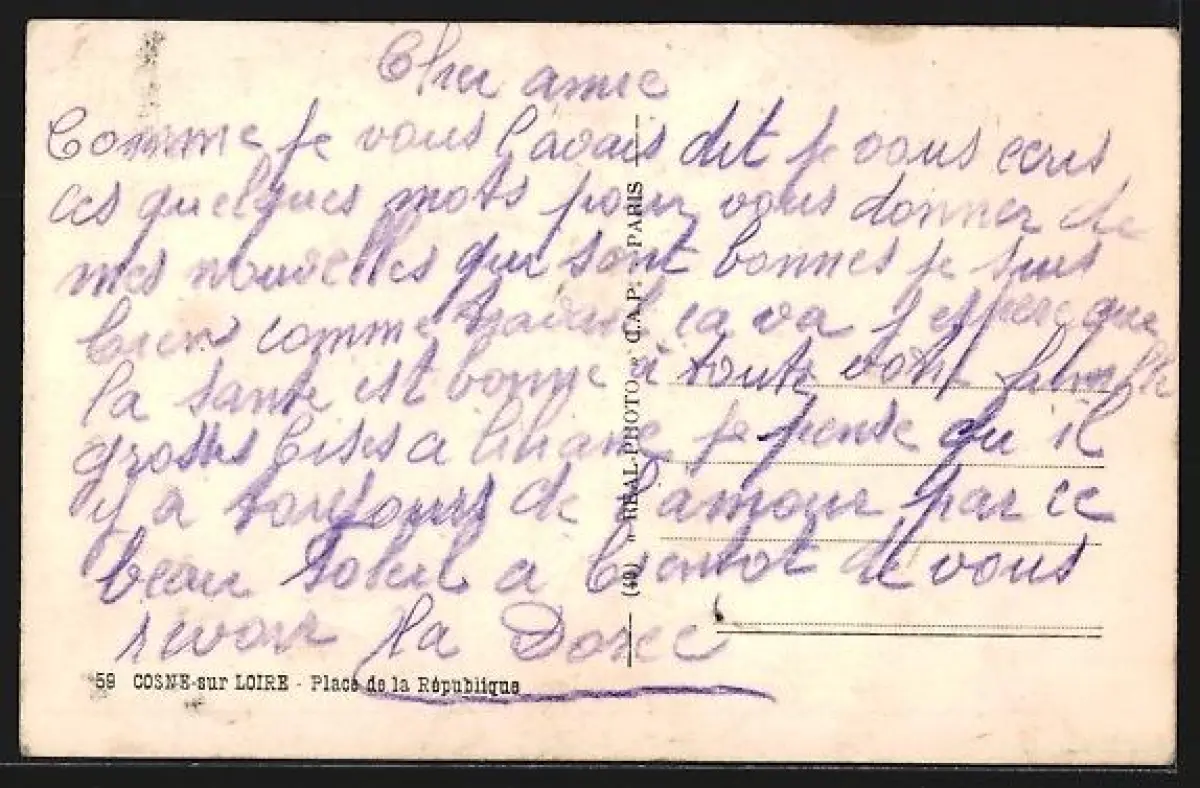 Cher amie
Comme je vous l'avais dit je vous ecris
ces quelques mots pour vous donner de
mes nouvelles qui sont bonnes je suis
bien comme travail ca va j'espere que
la sante est bonne à toute votre famille
grosses bises a liliane je pense qu'il
y a toujours de l'amour par ce
beau soleil a bientot de vous
revoir
59 COSNE-sur LOIRE - Place de la République
(49) "REAL-PHOTO" C.A.P. PARIS